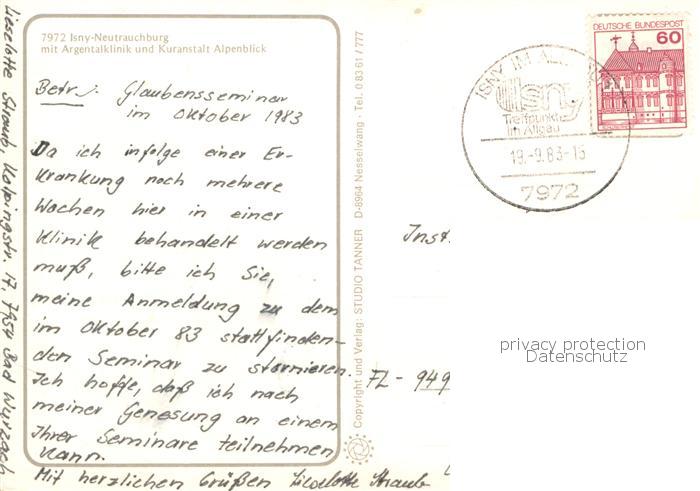 7972 Isny-Neutrauchburg
mit Argentalklinik und Kuranstalt Alpenblick
Betr.: Glaubensseminar
im Oktober 1983
Da ich infolge einer Er-
krankung noch mehrere
Wochen hier in einer
Klinik behandelt werden
muß, bitte ich Sie,
meine Anmeldung zu dem
im Oktober 83 stattfinden-
den Seminar zu stornieren.
Ich hoffe, daß ich nach
meiner Genesung an einem
Ihrer Seminare teilnehmen
kann.
Mit herzlichen Grüßen Lieselotte Straub
Lieselotte Straub, Kolpingstr. 17, 7954 Bad Wurzach
Copyright und Verlag: STUDIO TANNER D-8964 Nesselwang · Tel. 0 83 61 / 777
ISNY IM
isny
Treffpunkt
im Allgäu
19.-9.83-15
7972
DEUTSCHE BUNDESPOST
60
Inst
FL - 949
privacy protection
Datenschutz